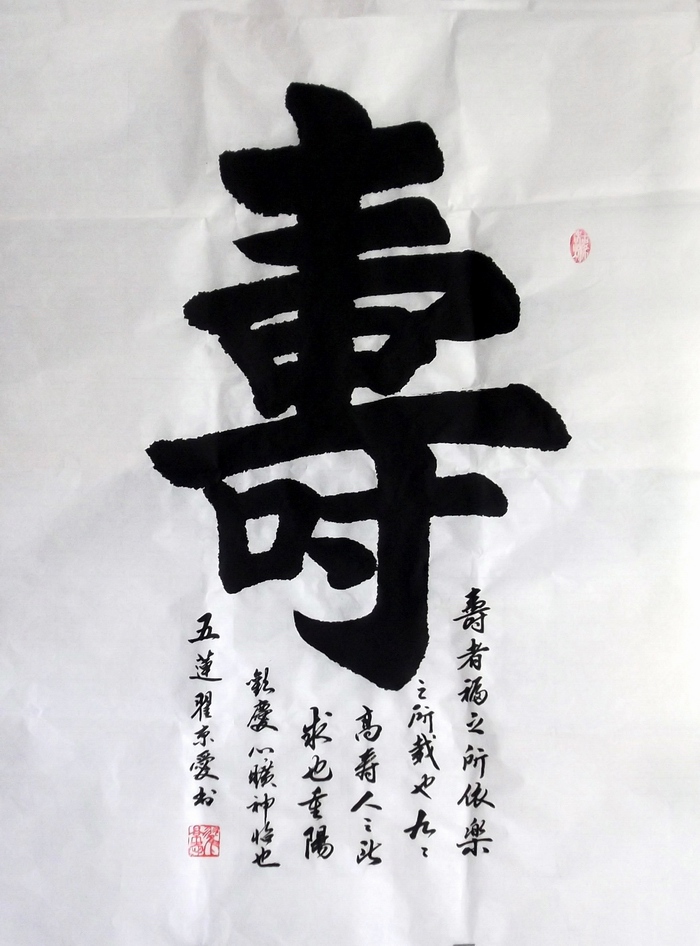 壽
壽者福之所依樂
之所哉也九〻
高壽人〻所
求也重陽
歡慶心曠神怡也
五蓮翟京愛书